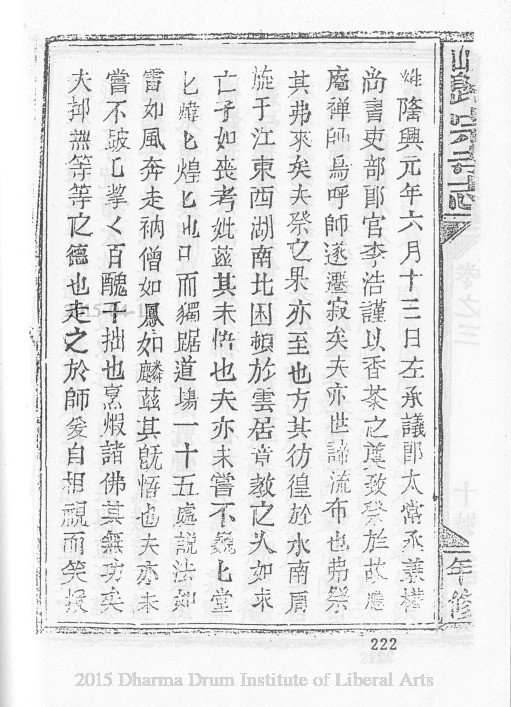 維隆興元年六月十三日左承議郎太常丞兼權
尚書吏部郎官李浩謹以香茶之奠致祭於故應
庵禪師烏呼師遂遷寂矣夫亦世諦流布也弗祭
其弗來矣夫祭之果亦至也方其彷徨於水南周
旋于江東西湖南北困頓於雲居章教之夫如來
亡子如喪考妣茲其未悟也夫亦未嘗不巍匕堂
匕煒匕煌匕也口而獨踞道場一十五處說法如
雷如風奔走衲僧如鳳如麟茲其既悟也夫亦未
嘗不跛匕挈く百醜千拙也烹煅諸佛其無功矣
夫抑無等等之德也走之於師爰自相覿而笑投
卷之三
十號
年修
222
2015 Dharma Drum Institute of Liberal Arts